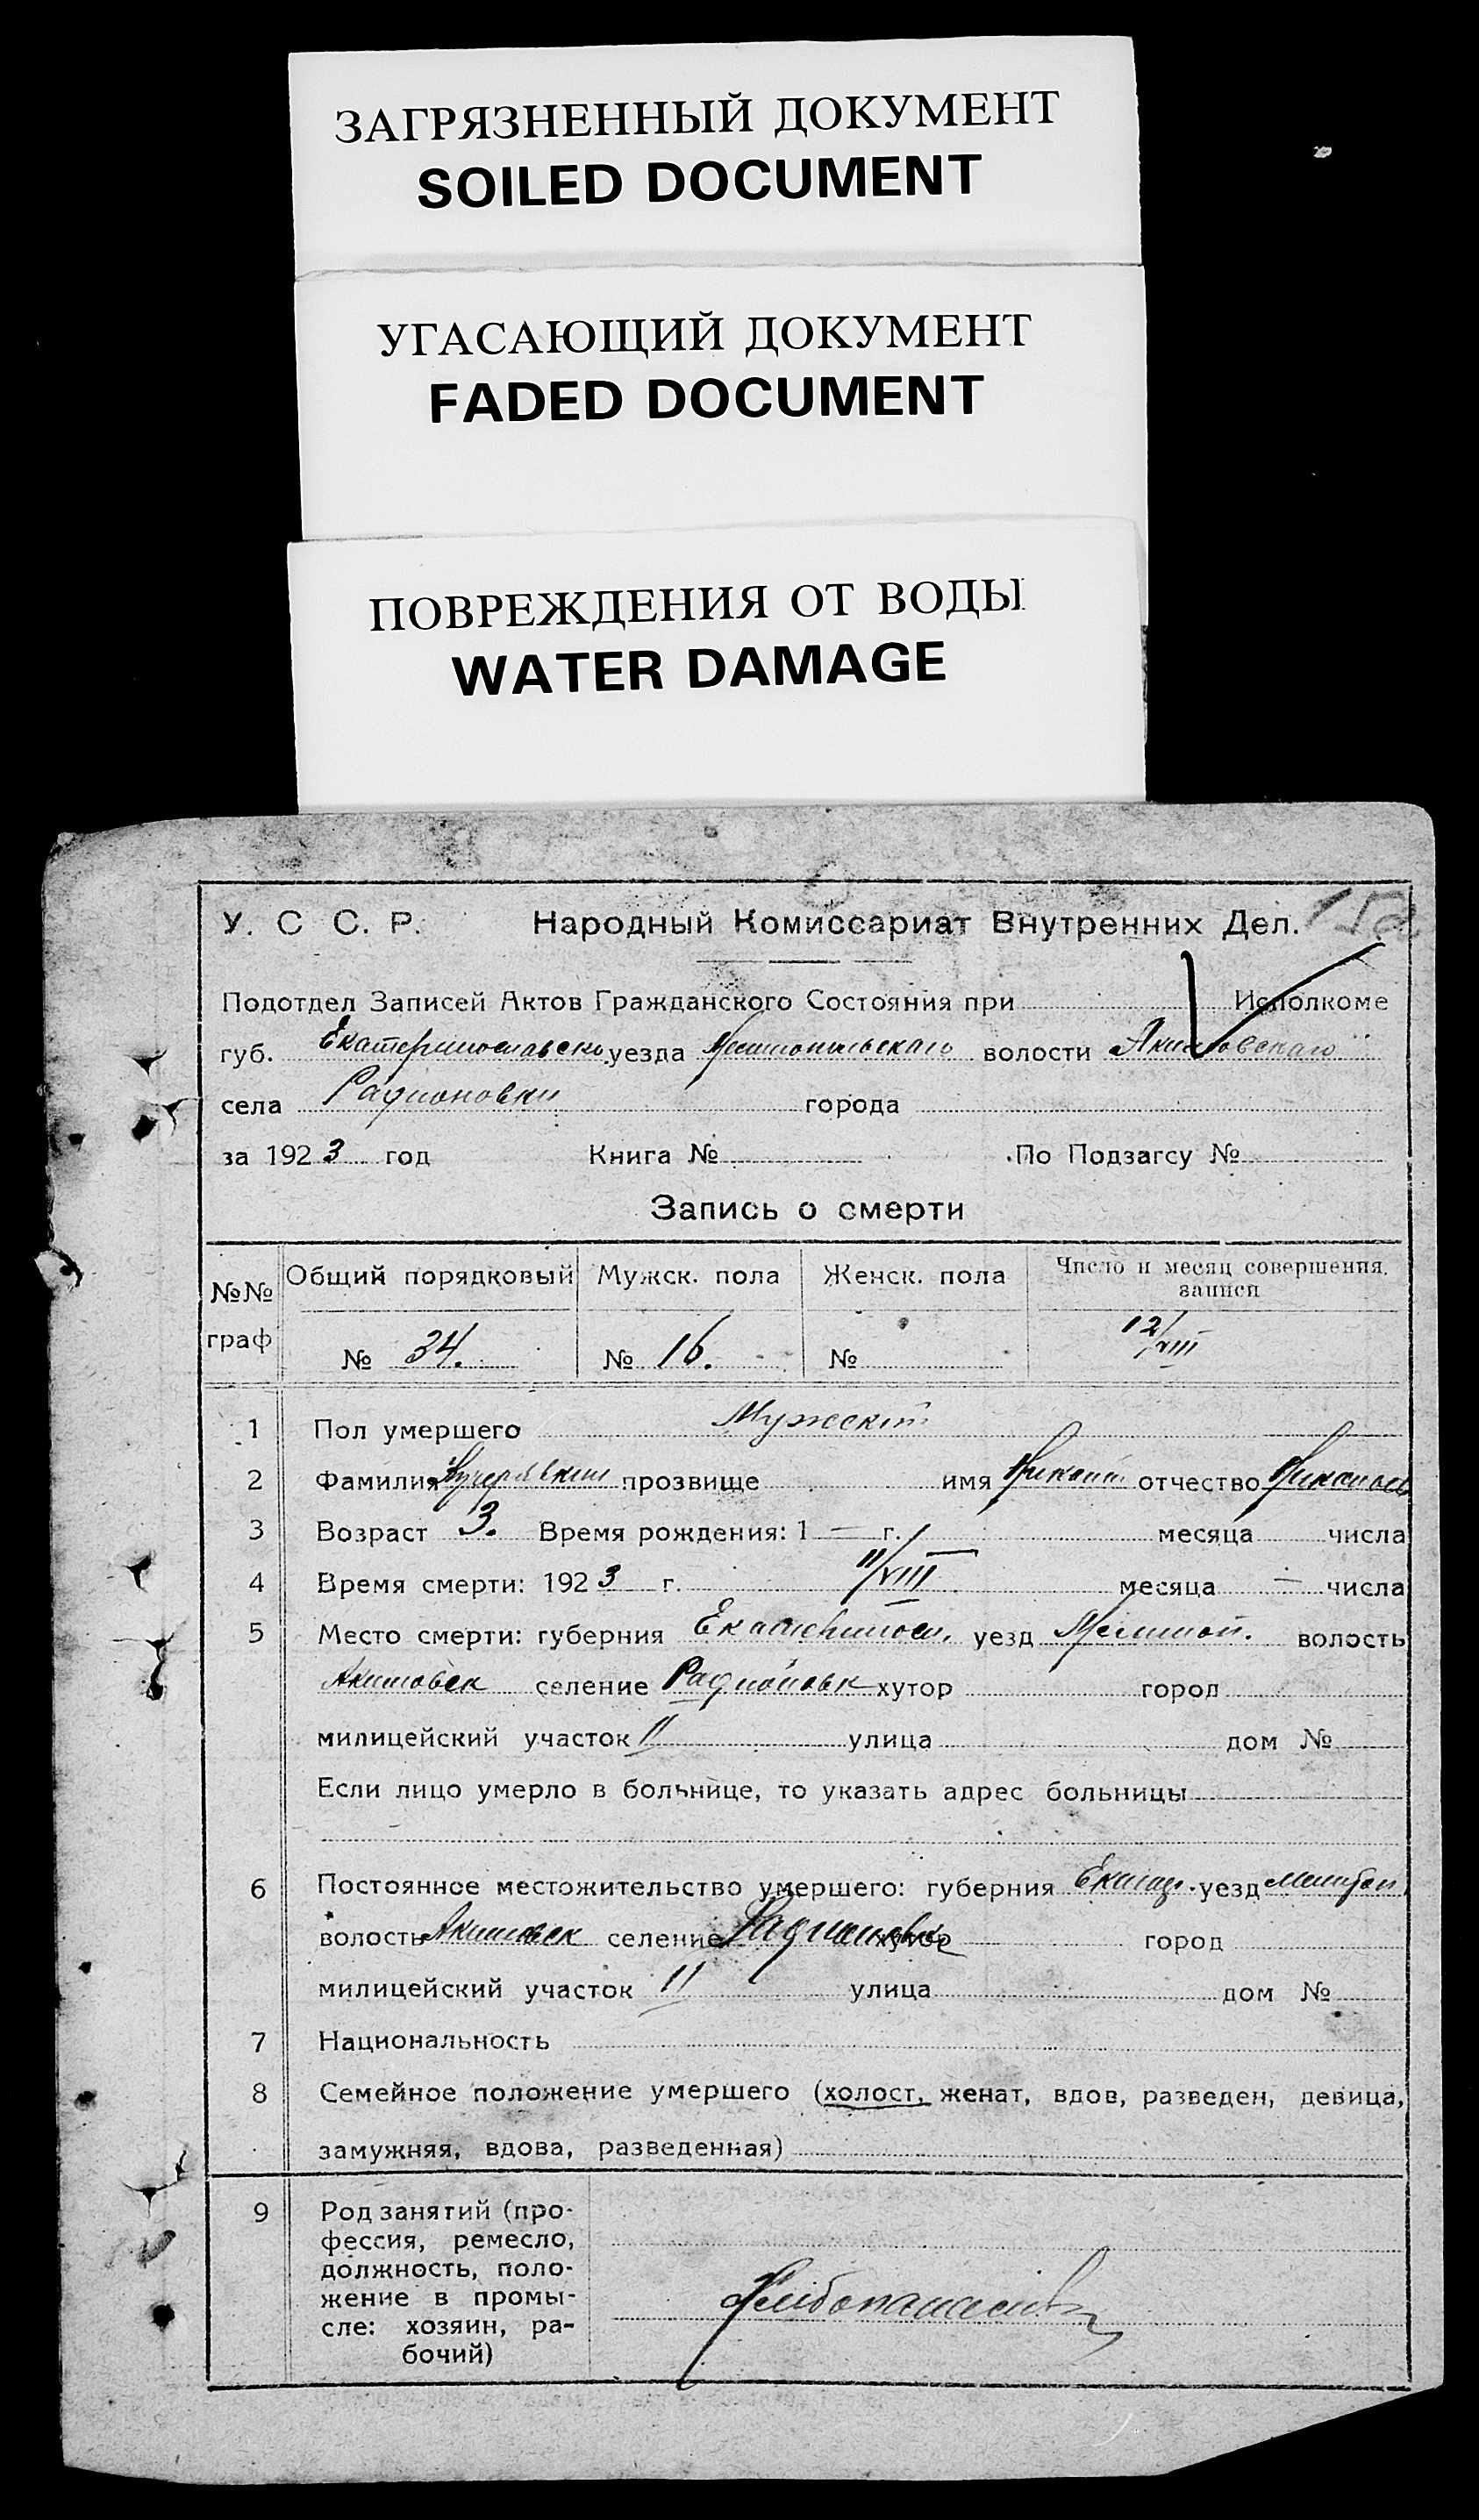 ЗАГРЯЗНЕННЫЙ ДОКУМЕНТ
SOILED DOCUMENT
УГАСАЮЩИЙ ДОКУМЕНТ
FADED DOCUMENT
ПОВРЕЖДЕНИЯ ОТ ВОДЫ
WATER DAMAGE
У. С С. Р. Народный Комиссариат Внутренних Дел.
Подотдел Записей Актов Гражданского Состояния при Исполкоме
губ. Екатеринославско уезда Мелитопольскаго волости Акимовскаго
села Радионовки города
за 1923 год Книга № По Подзагсу №
Запись о смерти
№№ граф Общий порядковый Мужск. пола Женск. пола Число и месяц совершения записи
№ 34. № 16. № 12/VIII
1 Пол умершего Мужской
2 Фамилия прозвище имя отчество
3 Возраст 3. Время рождения: 1 — г. месяца числа
4 Время смерти: 1923 г. 11/VIII месяца — числа
5 Место смерти: губерния Екатеринос. уезд Мелитоп. волость
Акимовск селение Радионовк хутор город
милицейский участок II улица дом №
Если лицо умерло в больнице, то указать адрес больницы
6 Постоянное местожительство умершего: губерния Екатер. уезд Мелитоп
волость Акимовск селение Радионовк хутор город
милицейский участок II улица дом №
7 Национальность
8 Семейное положение умершего (холост, женат, вдов, разведен, девица,
замужняя, вдова, разведенная)
9 Род занятий (про-
фессия, ремесло,
должность, поло-
жение в промы-
сле: хозяин, ра-
бочий)